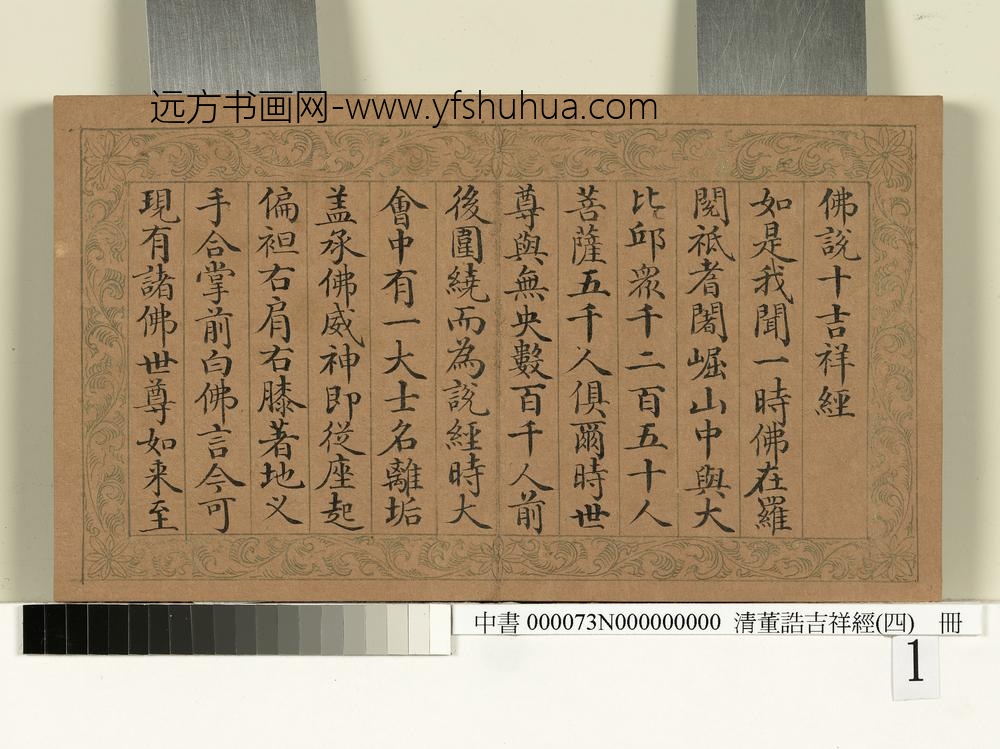 远方书画网-www.yfshuhua.com
佛說十吉祥經
如是我聞一時佛在羅
閱祇耆闍崛山中與大
比邱衆千二百五十人
菩薩五千人俱爾時世
尊與無央數百千人前
後圍繞而為說經時大
會中有一大士名離垢
盖承佛威神即從座起
偏袒右肩右膝著地义
手合掌前白佛言今可
現有諸佛世尊如来至
中書 000073N000000000 清董誥吉祥經(四) 冊
1